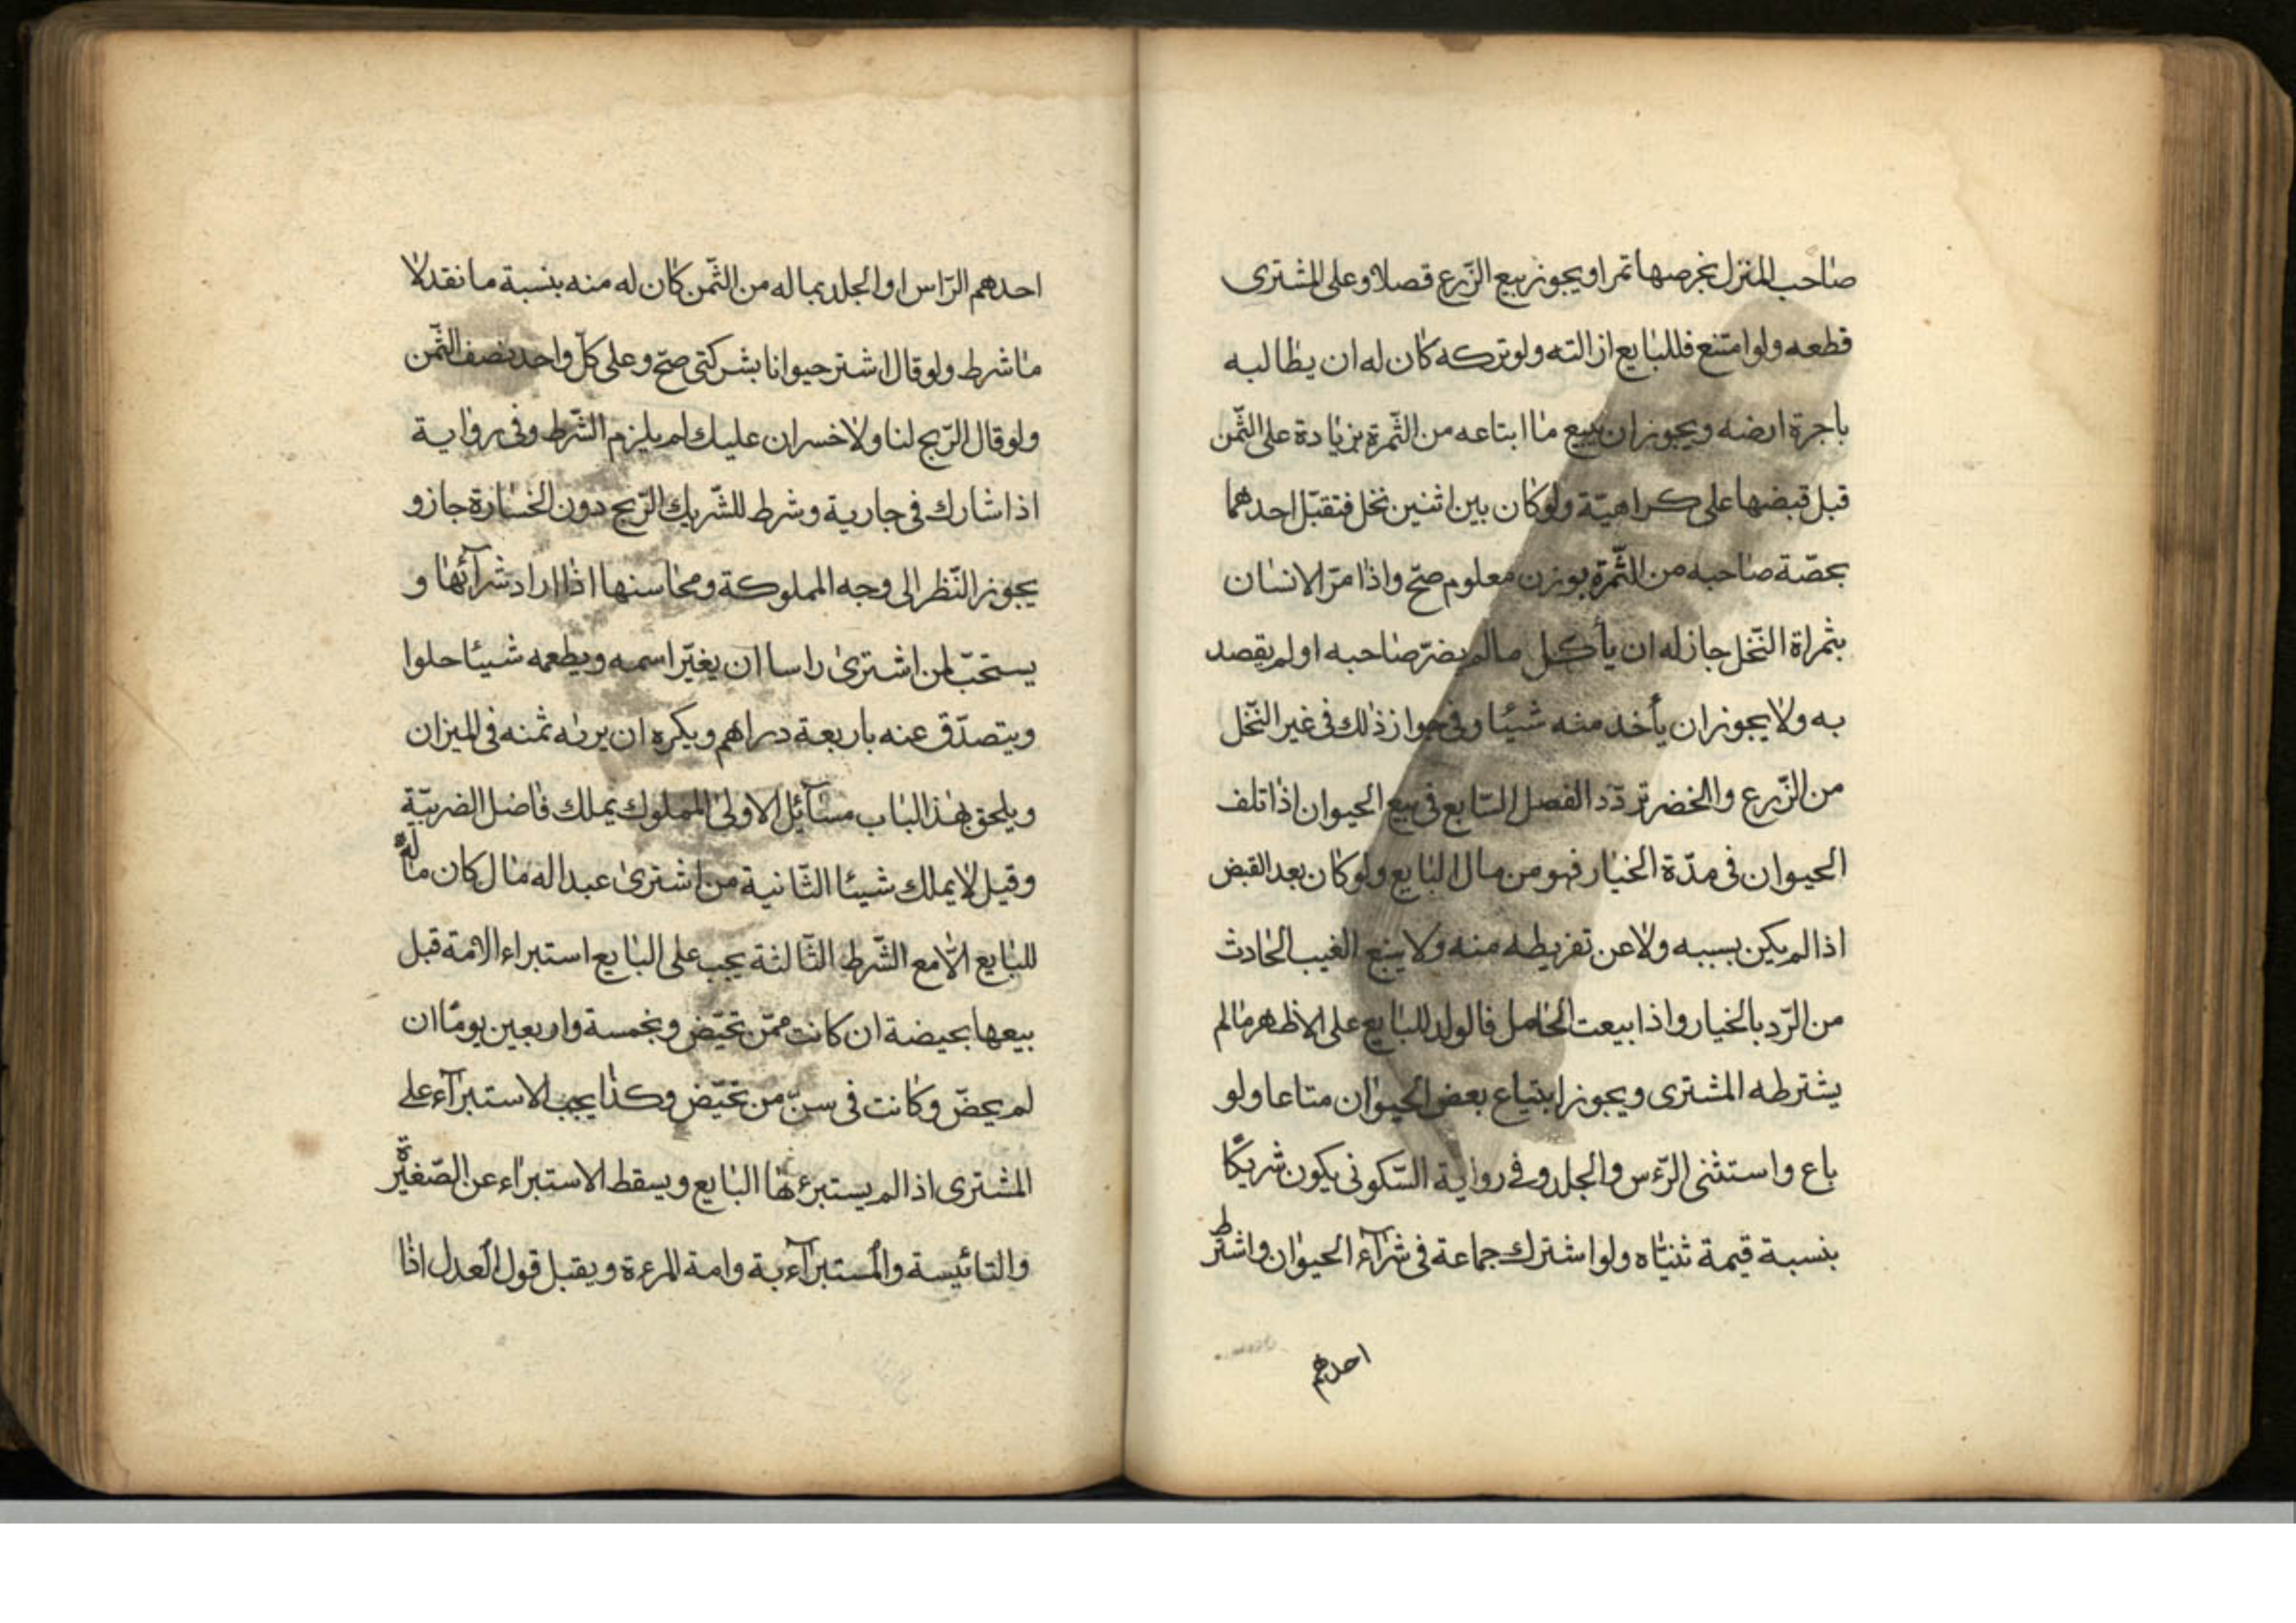 صاحب المنزل بخرصها تمرا ويجوز بيع الزّرع قصلا وعلى المشترى
قطعه ولو امتنع فللبايع ازالته ولو تركه كان له ان يطالبه
باجرة ارضه ويجوز ان يبيع ما ابتاعه من الثّمرة بزيادة على الثّمن
قبل قبضها على كراهيّة ولو كان بين اثنين نخل فتقبّل احدهما
بحصّة صاحبه من الثّمرة بوزن معلوم صحّ واذا مرّ الانسان
بثمراة النّخل جاز له ان يأكل مالم يضرّ صاحبه او لم يقصد
به ولا يجوز ان يأخذ منه شيئا وفى جواز ذلك فى غير النّخل
من الزّرع والخضر تردّد الفصل السّابع فى بيع الحيوان اذا تلف
الحيوان فى مدّة الخيار فهو من مال البايع ولو كان بعد القبض
اذا لم يكن بسببه ولا عن تفريطه منه ولا ينبع الغيب الحادث
من الرّد بالخيار واذا بيعت الحامل فالولد للبايع على الاظهر مالم
يشترطه المشترى ويجوز ابتياع بعض الحيوان متاعا ولو
باع واستثنى الرّءس والجلد وفى رواية السّكونى يكون شريكًا
بنسبة قيمة ثنيّاه ولو اشترك جماعة فى شرآء الحيوان واشترط
احدهم
احدهم الرّاس او الجلد بماله من الثّمن كان له منه بنسبة ما نقد لا
ما شرط ولو قال اشتر حيوانا بشركتى صحّ وعلى كلّ واحد نصف الثّمن
ولو قال الرّبح لنا ولا خسران عليك لم يلزم الشّرط وفى رواية
اذا شارك فى جارية وشرط للشّريك الرّبح دون الخسارة جاز و
يجوز النّظر الى وجه المملوكة ومحاسنها اذا اراد شرآئها و
يستحبّ لمن اشترى راسا ان يغيّر اسمه ويطعمه شيئا حلوا
ويتصدّق عنه باربعة دراهم ويكره ان يريه ثمنه فى الميزان
ويلحق بهذا الباب مسآئل الاولى المملوك يملك فاضل الضريبّة
وقيل لا يملك شيئا الثّانية من اشترى عبدا له مال كان ماله
للبايع الّا مع الشّرط الثّالثة يجب على البايع استبراء الامة قبل
بيعها بحيضة ان كانت ممّن تحيّض وبخمسة واربعين يومًا ان
لم يحضّ وكانت فى سنّ من تحيّض وكذا يجب الاستبرآء على
المشترى اذا لم يستبرءها البايع ويسقط الاستبراء عن الصّغيّرة
والتائيسة والمستبرآءبة وامة المرءة ويقبل قول العدل اذا